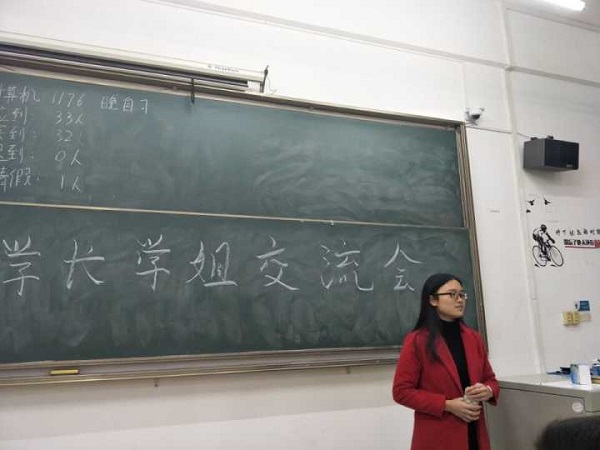 算机 1176 晚自习
应到: 33人
实到: 32人
迟到: 0人
请假: 1人
学长学姐交流会